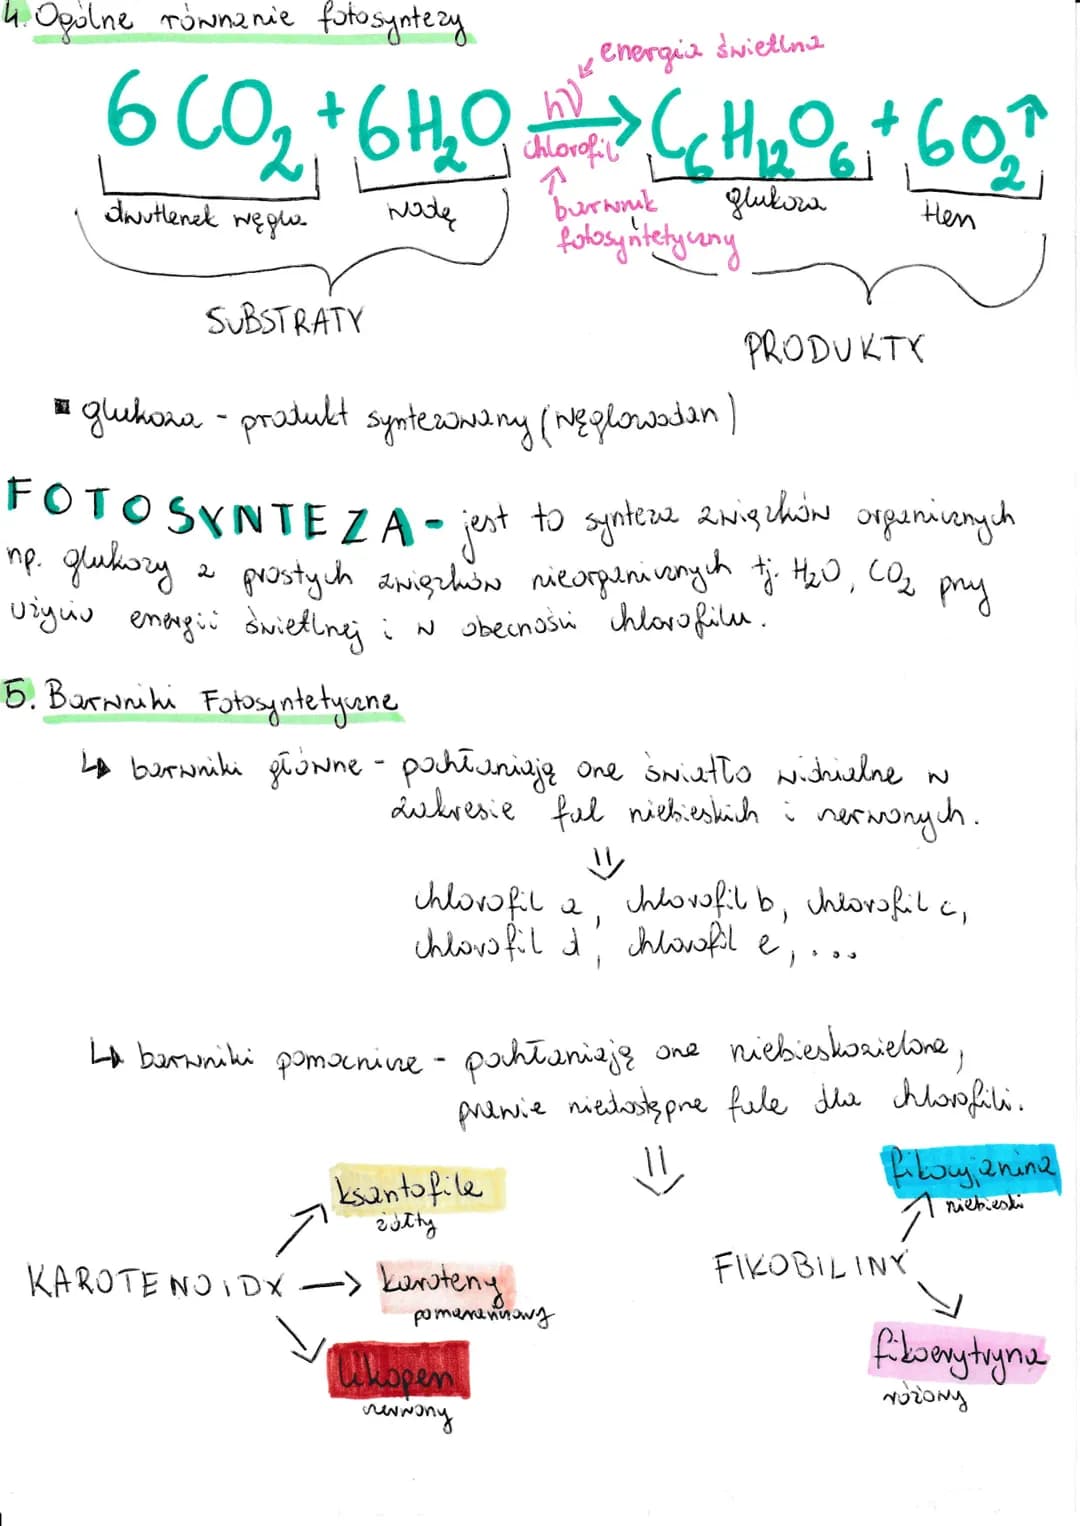 4. Ogólne równanie fotosyntezy
energia świetlna
6 CO₂ + 6H₂O hν → C₆H₁₂O₆ + 6O₂↑
chlorofil
dwutlenek węgla
wodę
barwnik
fotosyntetyczny
glukoza
tlen
SUBSTRATY
PRODUKTY
▪ glukoza - produkt syntezowany (węglowodan)
FOTOSYNTEZA - jest to synteza związków organicznych
np. glukozy z prostych związków nieorganicznych tj. H₂O, CO₂ przy
użyciu energii świetlnej i w obecności chlorofilu.
5. Barwniki Fotosyntetyczne
↳ barwniki główne - pochłaniają one światło widzialne w
zakresie fal niebieskich i czerwonych.
⇓
chlorofil a, chlorofil b, chlorofil c,
chlorofil d, chlorofil e, ...
↳ barwniki pomocnicze - pochłaniają one niebieskozielone,
prawie niedostępne fale dla chlorofili.
⇓
fikocyjanina
niebieski
ksantofile
żółty
FIKOBILINY
KAROTENOIDY → karoteny
pomarańczowy
fikoerytryna
różowy
likopen
czerwony